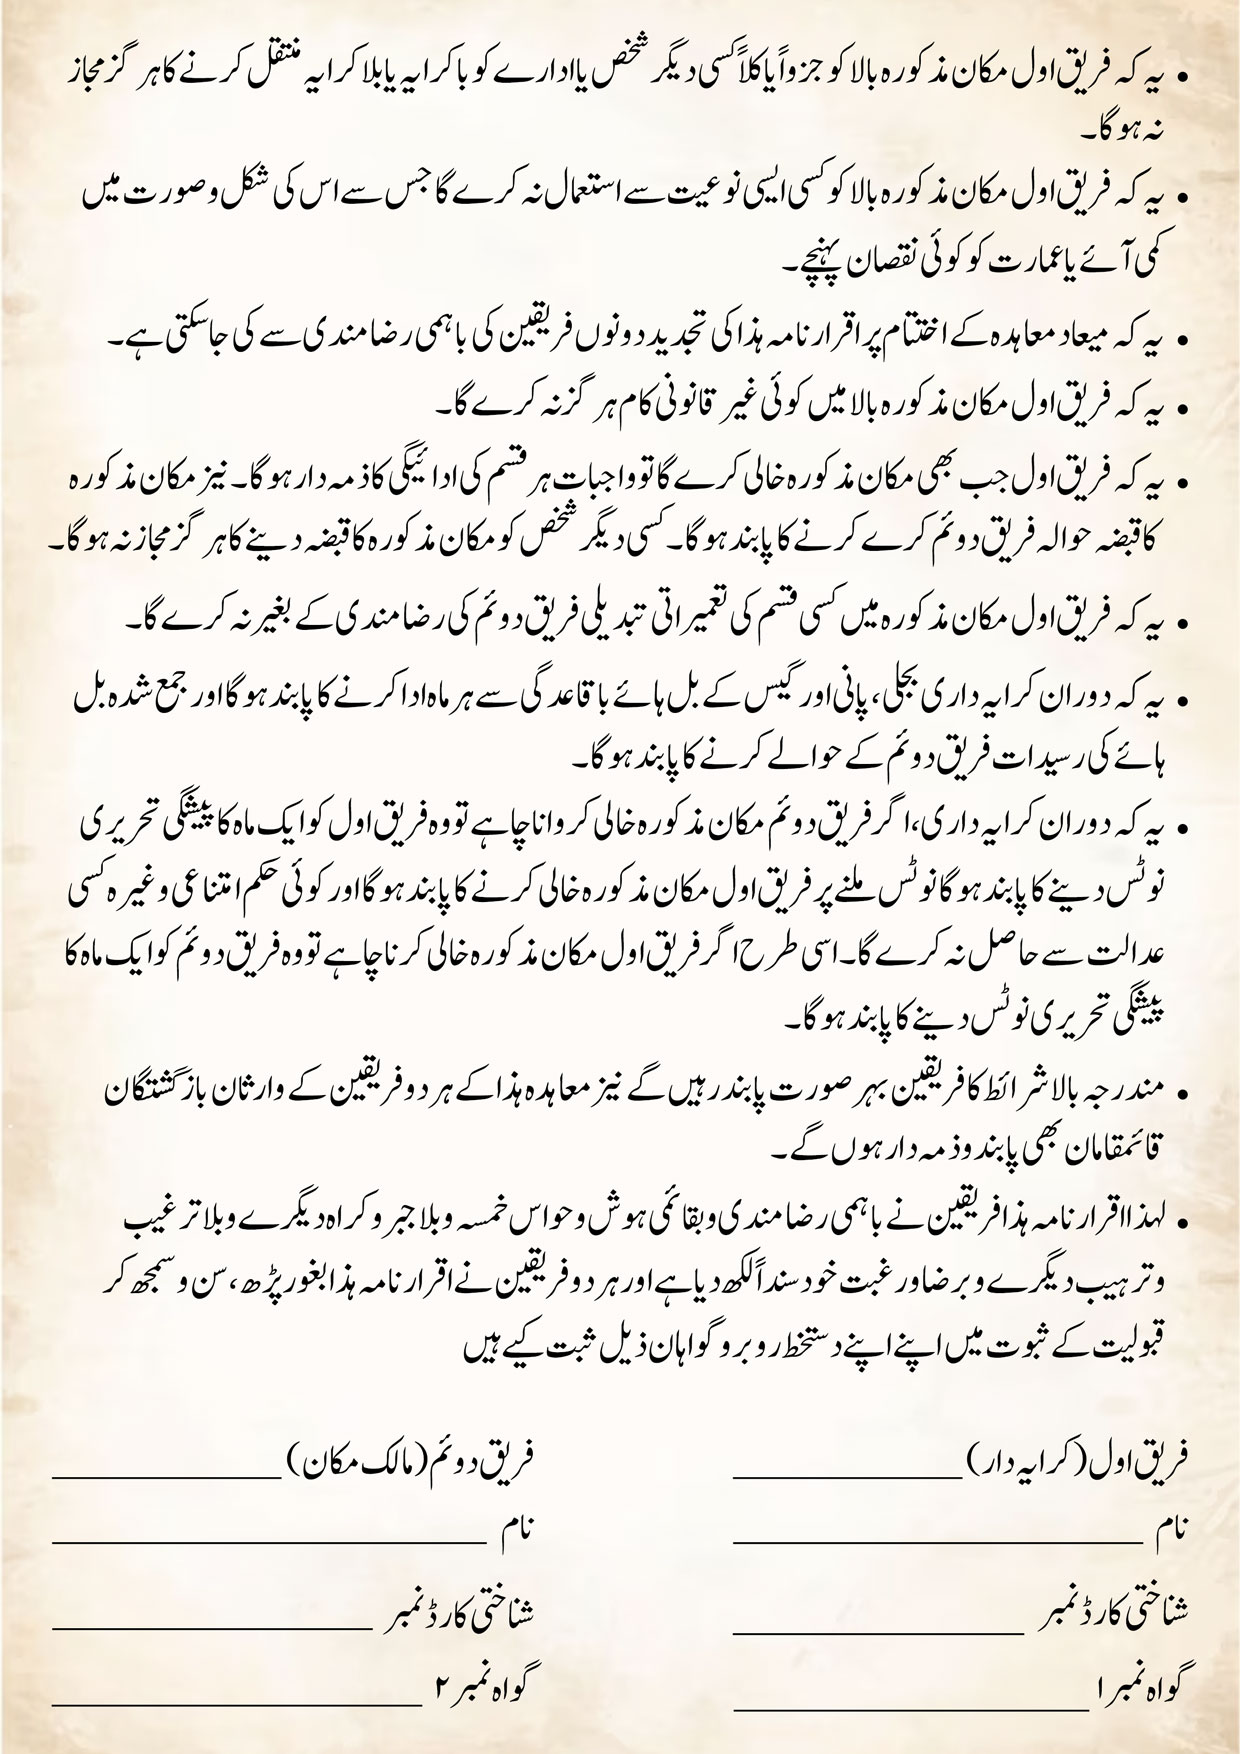 • یہ کہ فریق اول مکان مذکورہ بالا کو جزواً یا کلاً کسی دیگر شخص یا ادارے کو با کرایہ یا بلا کرایہ منتقل کرنے کا ہر گز مجاز
نہ ہو گا۔
• یہ کہ فریق اول مکان مذکورہ بالا کو کسی ایسی نوعیت سے استعمال نہ کرے گا جس سے اس کی شکل و صورت میں
کمی آئے یا عمارت کو کوئی نقصان پہنچے۔
• یہ کہ میعاد معاہدہ کے اختتام پر اقرار نامہ ہذا کی تجدید دونوں فریقین کی باہمی رضامندی سے کی جاسکتی ہے۔
• یہ کہ فریق اول مکان مذکورہ بالا میں کوئی غیر قانونی کام ہر گز نہ کرے گا۔
• یہ کہ فریق اول جب بھی مکان مذکورہ خالی کرے گا تو واجبات ہر قسم کی ادائیگی کا ذمہ دار ہو گا۔ نیز مکان مذکورہ
کا قبضہ حوالہ فریق دوئم کرے کرنے کا پابند ہو گا۔ کسی دیگر شخص کو مکان مذکورہ کا قبضہ دینے کا ہر گز مجاز نہ ہو گا۔
• یہ کہ فریق اول مکان مذکورہ میں کسی قسم کی تعمیراتی تبدیلی فریق دوئم کی رضامندی کے بغیر نہ کرے گا۔
• یہ کہ دوران کرایہ داری بجلی، پانی اور گیس کے بل ہائے باقاعدگی سے ہر ماہ ادا کرنے کا پابند ہو گا اور جمع شدہ بل
ہائے کی رسیدات فریق دوئم کے حوالے کرنے کا پابند ہو گا۔
• یہ کہ دوران کرایہ داری، اگر فریق دوئم مکان مذکورہ خالی کروانا چاہے تو وہ فریق اول کو ایک ماہ کا پیشگی تحریری
نوٹس دینے کا پابند ہو گا نوٹس ملنے پر فریق اول مکان مذکورہ خالی کرنے کا پابند ہو گا اور کوئی حکم امتناعی وغیرہ کسی
عدالت سے حاصل نہ کرے گا۔ اسی طرح اگر فریق اول مکان مذکورہ خالی کرنا چاہے تو وہ فریق دوئم کو ایک ماہ کا
پیشگی تحریری نوٹس دینے کا پابند ہو گا۔
• مندرجہ بالا شرائط کا فریقین بہر صورت پابند رہیں گے نیز معاہدہ ہذا کے ہر دو فریقین کے وارثان بازگشتگان
قائمقامان بھی پابند و ذمہ دار ہوں گے۔
• لہذا اقرار نامہ ہذا فریقین نے باہمی رضامندی و بقائمی ہوش و حواس خمسہ و بلا جبر و کراہ دیگرے و بلا ترغیب
و ترہیب دیگرے و برضا و رغبت خود سنداً لکھ دیا ہے اور ہر دو فریقین نے اقرار نامہ ہذا بغور پڑھ، سن و سمجھ کر
قبولیت کے ثبوت میں اپنے اپنے دستخط روبرو گواہان ذیل ثبت کیے ہیں
فریق اول (کرایہ دار) ____________ فریق دوئم (مالک مکان) ____________
نام ____________ نام ____________
شناختی کارڈ نمبر ____________ شناختی کارڈ نمبر ____________
گواہ نمبر ۱ ____________ گواہ نمبر ۲ ____________